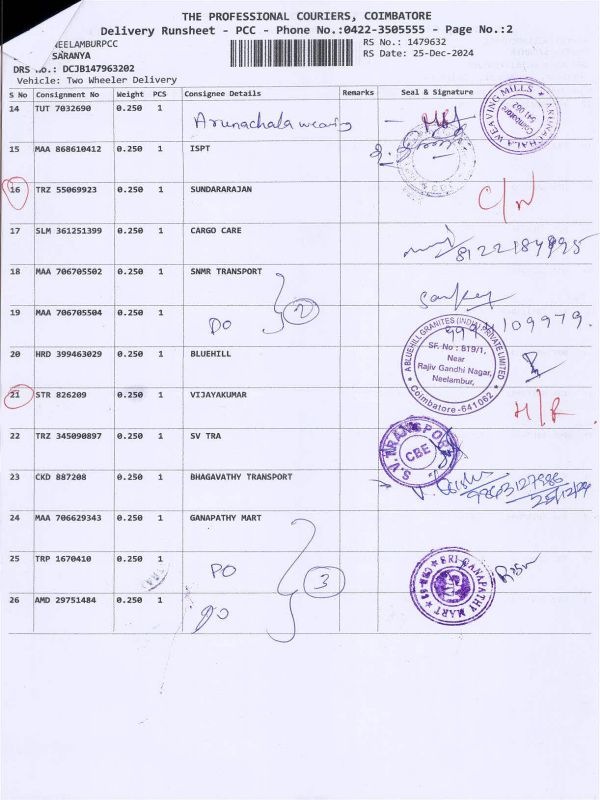 THE PROFESSIONAL COURIERS, COIMBATORE
Delivery Runsheet - PCC - Phone No.:0422-3505555 - Page No.:2
NEELAMBURPCC
RS No.: 1479632
SARANYA
RS Date: 25-Dec-2024
DRS No.: DCJB147963202
Vehicle: Two Wheeler Delivery
S No Consignment No Weight PCS Consignee Details Remarks Seal & Signature
14 TUT 7032690 0.250 1 Arunachala weaving
ARUNACHALA WEAVING MILLS
Coimbatore
641 062
15 MAA 868610412 0.250 1 ISPT
16 TRZ 55069923 0.250 1 SUNDARARAJAN C/N
17 SLM 361251399 0.250 1 CARGO CARE
18 MAA 706705502 0.250 1 SNMR TRANSPORT
19 MAA 706705504 0.250 1 DO 2
20 HRD 399463029 0.250 1 BLUEHILL
A BLUEHILL GRANITES (INDIA) PRIVATE LIMITED
SF. No : 819/1,
Near
Rajiv Gandhi Nagar,
Neelambur,
Coimbatore-641062
21 STR 826209 0.250 1 VIJAYAKUMAR H/R
22 TRZ 345090897 0.250 1 SV TRA
S.V. TRANSPORT
CBE
23 CKD 887208 0.250 1 BHAGAVATHY TRANSPORT
9843127986
25/12/24
24 MAA 706629343 0.250 1 GANAPATHY MART
25 TRP 1670410 0.250 1 DO 3
SRI GANAPATHY MART
26 AMD 29751484 0.250 1 DO